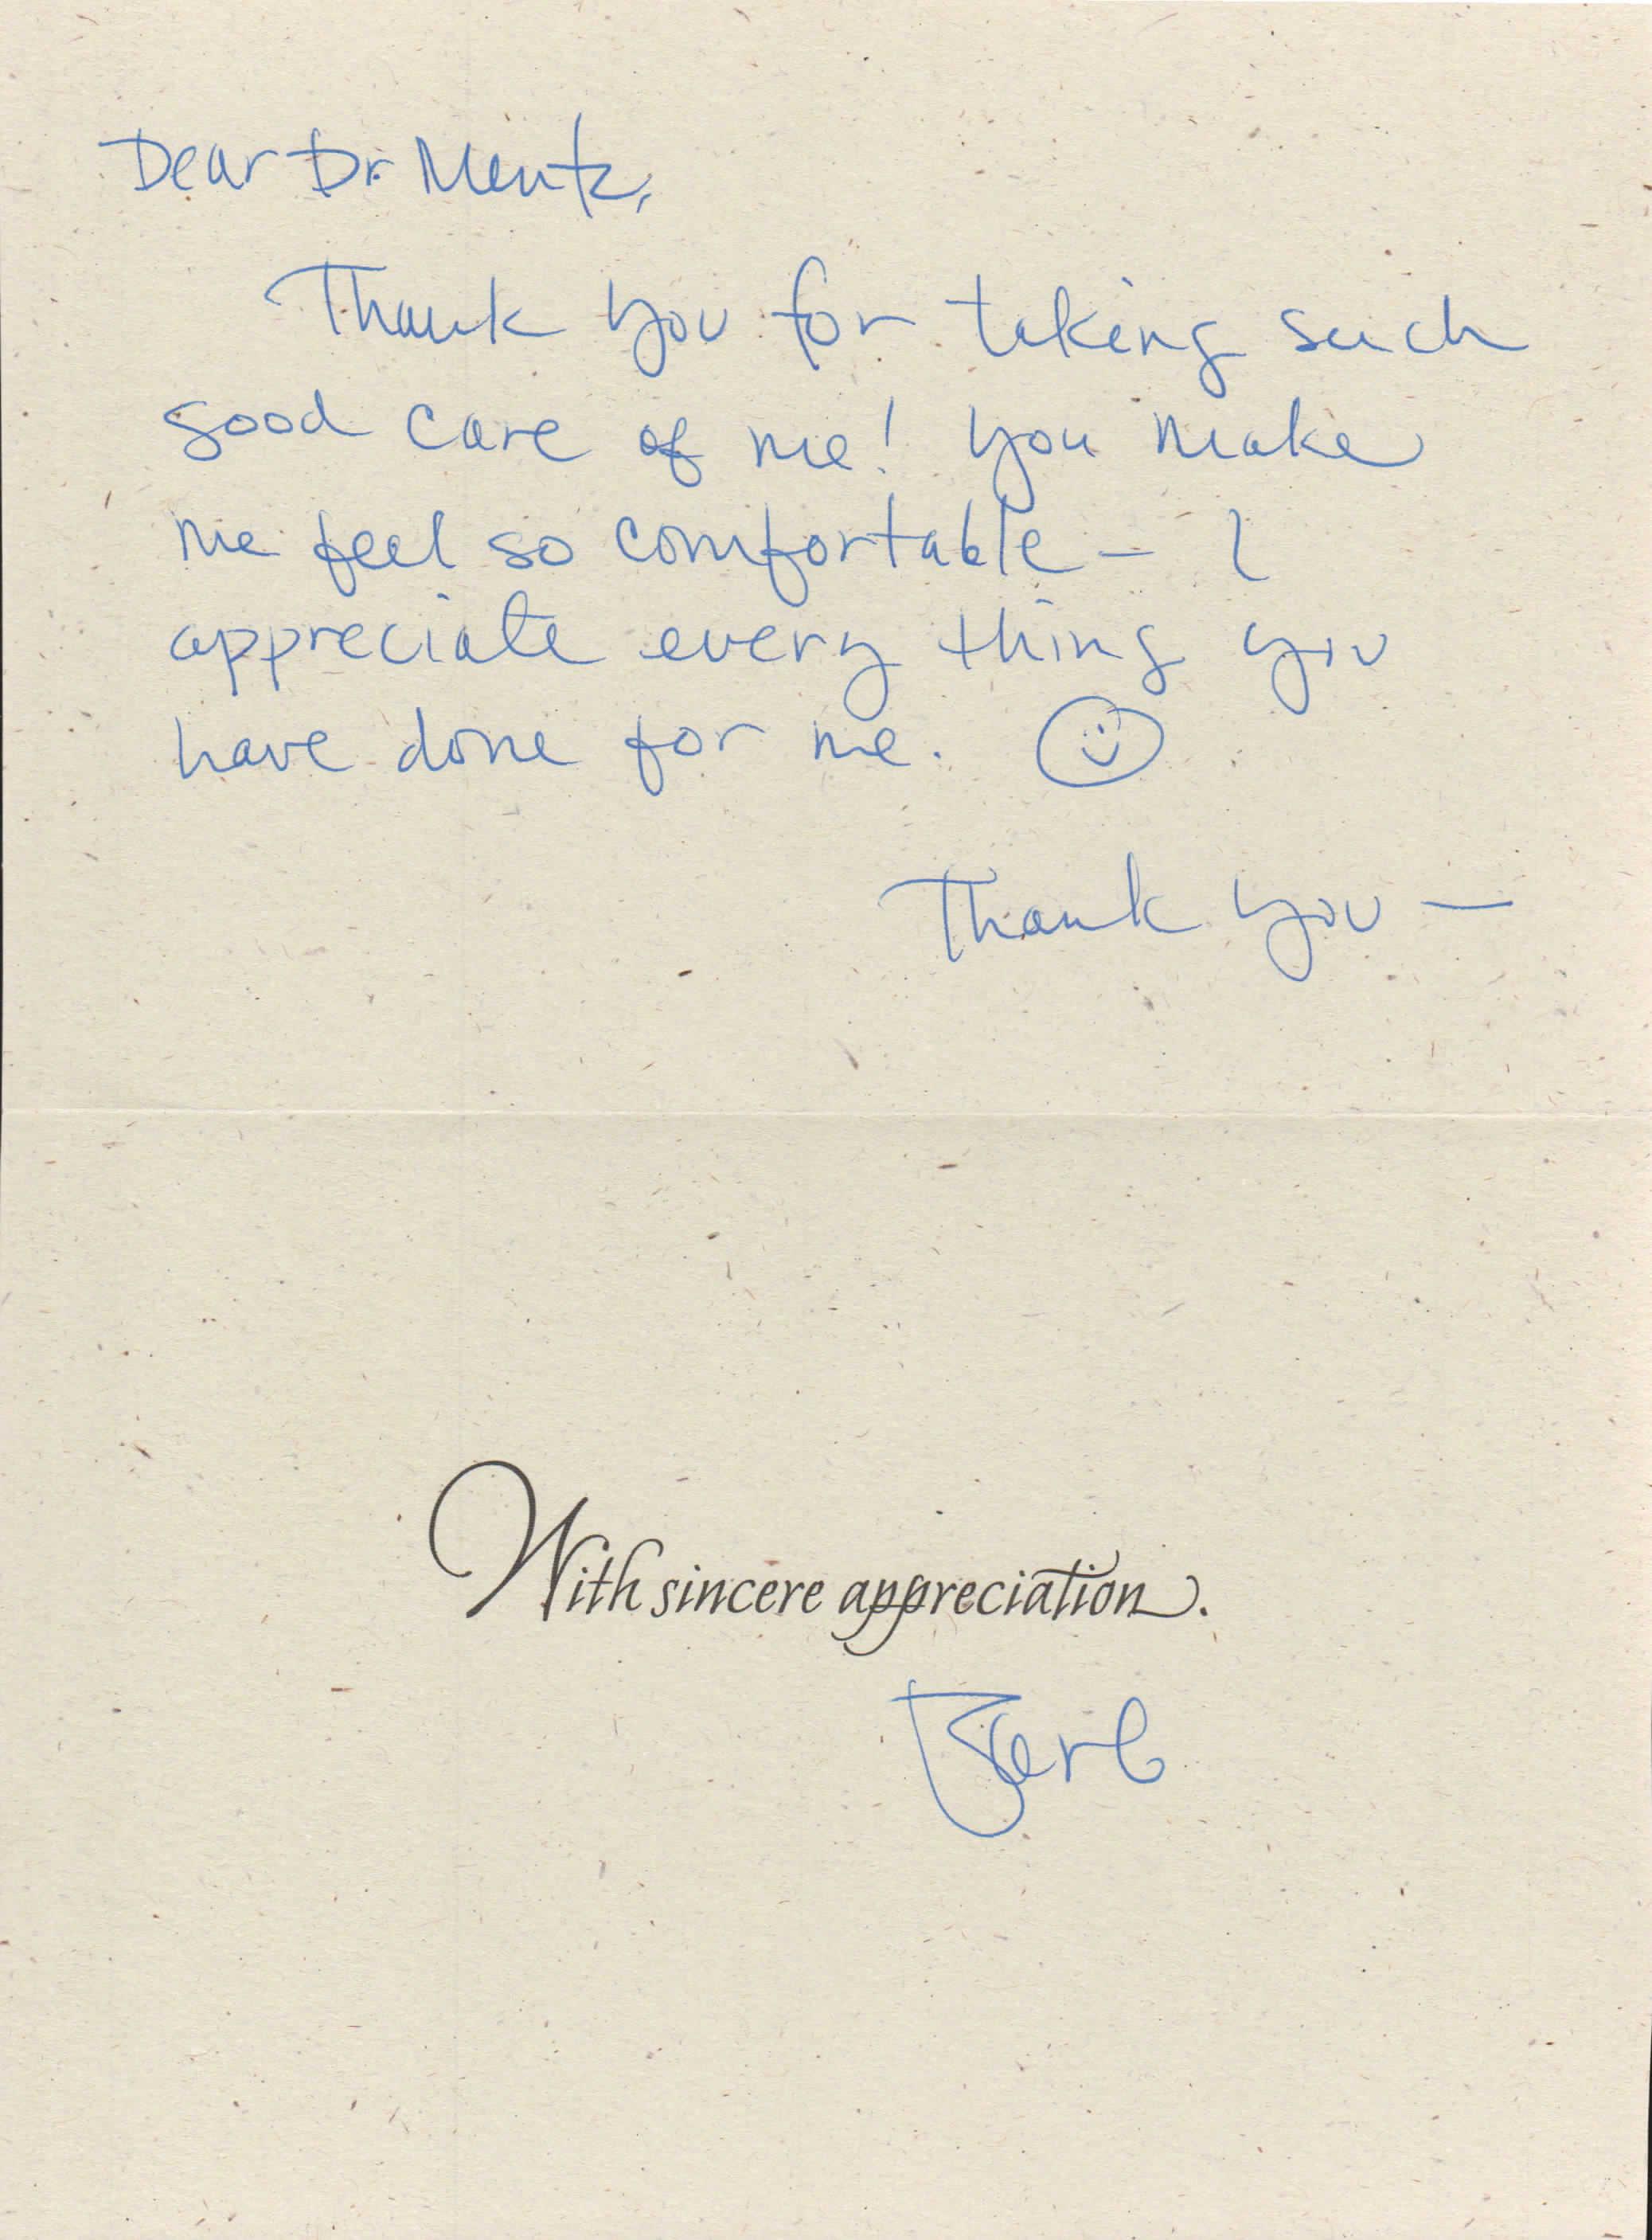 Dear Dr. Mentz,
Thank you for taking such
good care of me! You make
me feel so comfortable – I
appreciate every thing you
have done for me. ☺
Thank you —
With sincere appreciation.